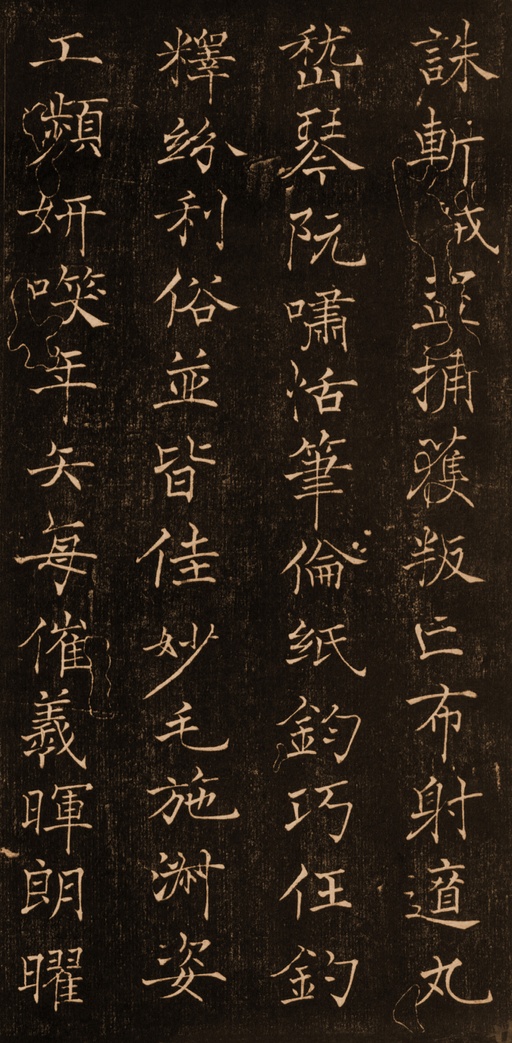 誅斬賊盜捕獲叛亡布射遼丸
嵇琴阮嘯恬筆倫紙鈞巧任釣
釋紛利俗並皆佳妙毛施淑姿
工頻妍㗛年矢每催羲暉朗曜